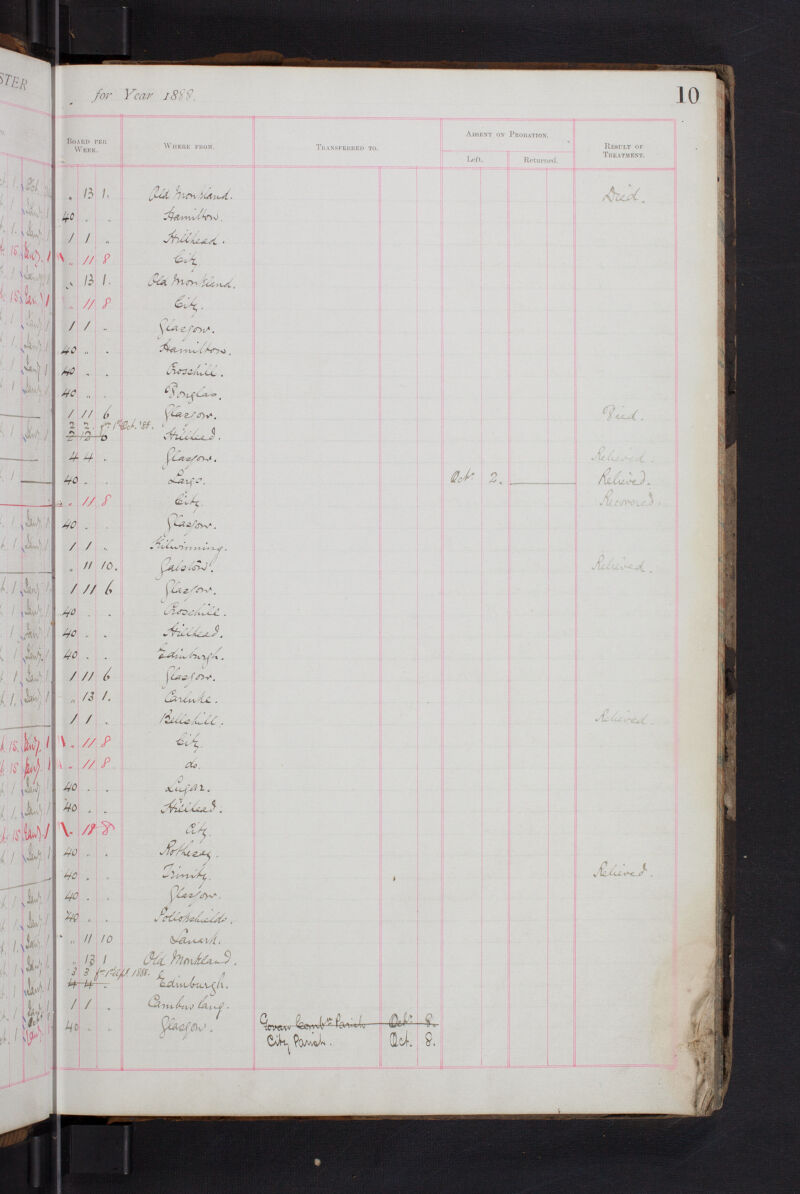 STER
for Year 1888.
10
BOARD PER WEEK. WHERE FROM. TRANSFERRED TO. ABSENT ON PROBATION. RESULT OF TREATMENT.
Left. Returned.
„ 13 1. Old Monkland. Died.
40 . . Hamilton.
1 1 „ Hillhead.
„ 11 8 City
„ 13 1. Old Monkland.
„ 11 8 City.
1 1 „ Glasgow.
40 „ . Hamilton.
40 „ . Crosshill.
40 „ . Douglas.
1 11 6 Glasgow. Died.
2 2 . fr 1st Oct. '88.
2 12 6 Hillhead.
4 4 . Glasgow. Relieved.
40 . . Largs. Oct 2. Relieved.
„ 11 8 City. Recovered.
40 . . Glasgow.
1 1 „ Kilwinning.
„ 11 10. Galston. Relieved.
1 11 6 Glasgow.
40 . . Crosshill.
40 . . Hillhead.
40 . . Edinburgh.
1 11 6 Glasgow.
„ 13 1. Carluke.
1 1 . Bellshill. Relieved.
„ 11 8 City
„ 11 8 do.
40 . . Lugar.
40 . . Hillhead.
. 18 8 City.
40 . . Rothesay.
40 . . Trinity. Relieved.
40 . . Glasgow.
40 . . Pollokshields.
„ 11 10 Lanark.
„ 13 1 Old Monkland.
3 3 fr 1st Sept. 1888.
4 4 . Edinburgh.
1 1 . Cambuslang.
40 . . Glasgow. Govan Combn Parish Oct. 8.
City Parish. Oct. 8.